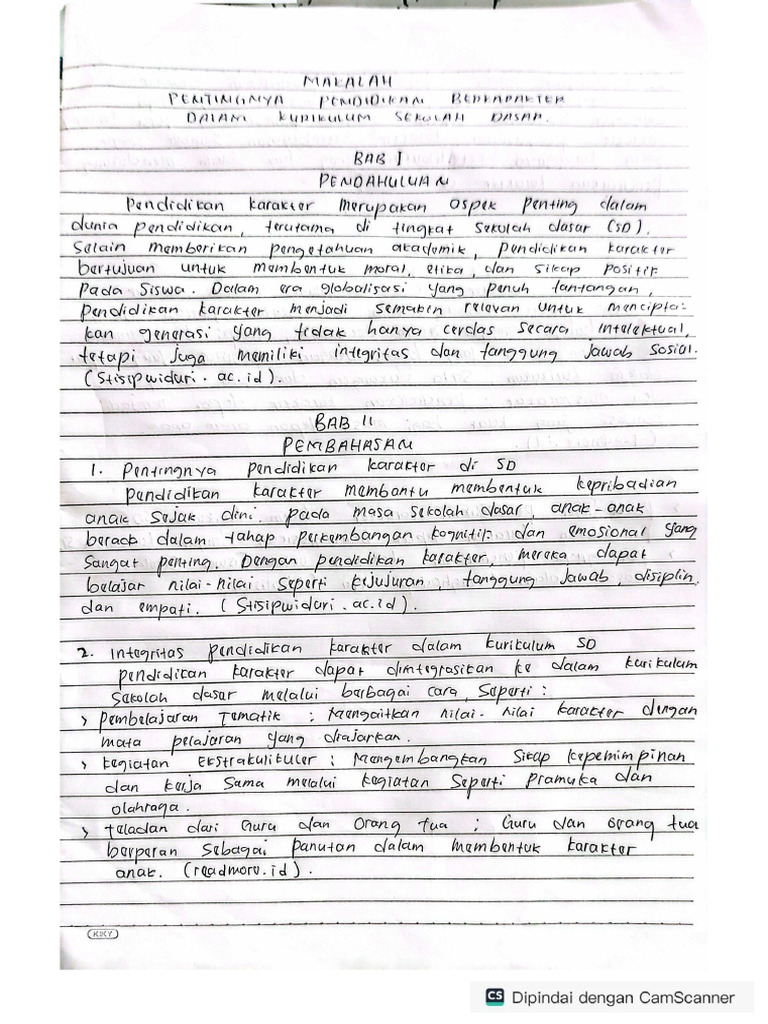 MAKALAH
PENTINGNYA PENDIDIKAN BERKARAKTER
DALAM KURIKULUM SEKOLAH DASAR.
BAB I
PENDAHULUAN
Pendidikan karakter merupakan aspek penting dalam
dunia pendidikan, terutama di tingkat sekolah dasar (SD).
Selain memberikan pengetahuan akademik, pendidikan karakter
bertujuan untuk membentuk moral, etika, dan sikap positif
pada siswa. Dalam era globalisasi yang penuh tantangan,
pendidikan karakter menjadi semakin relevan untuk mencipta-
kan generasi yang tidak hanya cerdas secara intelektual,
tetapi juga memiliki integritas dan tanggung jawab sosial.
(Stisipwiduri.ac.id).
BAB II
PEMBAHASAN
1. Pentingnya pendidikan karakter di SD
pendidikan karakter membantu membentuk kepribadian
anak sejak dini. pada masa sekolah dasar, anak-anak
berada dalam tahap perkembangan kognitif dan emosional yang
sangat penting. Dengan pendidikan karakter, mereka dapat
belajar nilai-nilai seperti kejujuran, tanggung jawab, disiplin,
dan empati. (Stisipwiduri.ac.id).
2. Integritas pendidikan karakter dalam kurikulum SD
pendidikan karakter dapat diintegrasikan ke dalam kurikulum
sekolah dasar melalui berbagai cara, seperti:
> pembelajaran Tematik : Mengaitkan nilai-nilai karakter dengan
mata pelajaran yang diajarkan.
> kegiatan Ekstrakulikuler : Mengembangkan sikap kepemimpinan
dan kerja sama melalui kegiatan seperti pramuka dan
olahraga.
> teladan dari Guru dan Orang tua : Guru dan orang tua
berperan sebagai panutan dalam membentuk karakter
anak. (readmore.id).
KIKY
CS Dipindai dengan CamScanner